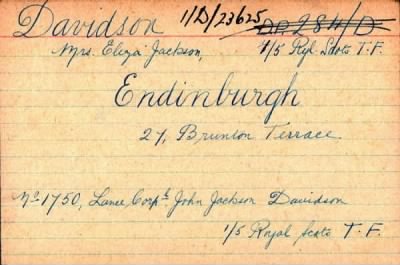 Davidson 11/D/23625 D.P. 284/D
Mrs. Eliza Jackson, 1/5 Ryl. Scots T.F.
Endinburgh
27, Brunton Terrace
No 1750, Lance Corpl. John Jackson Davidson
1/5 Royal Scots T.F.